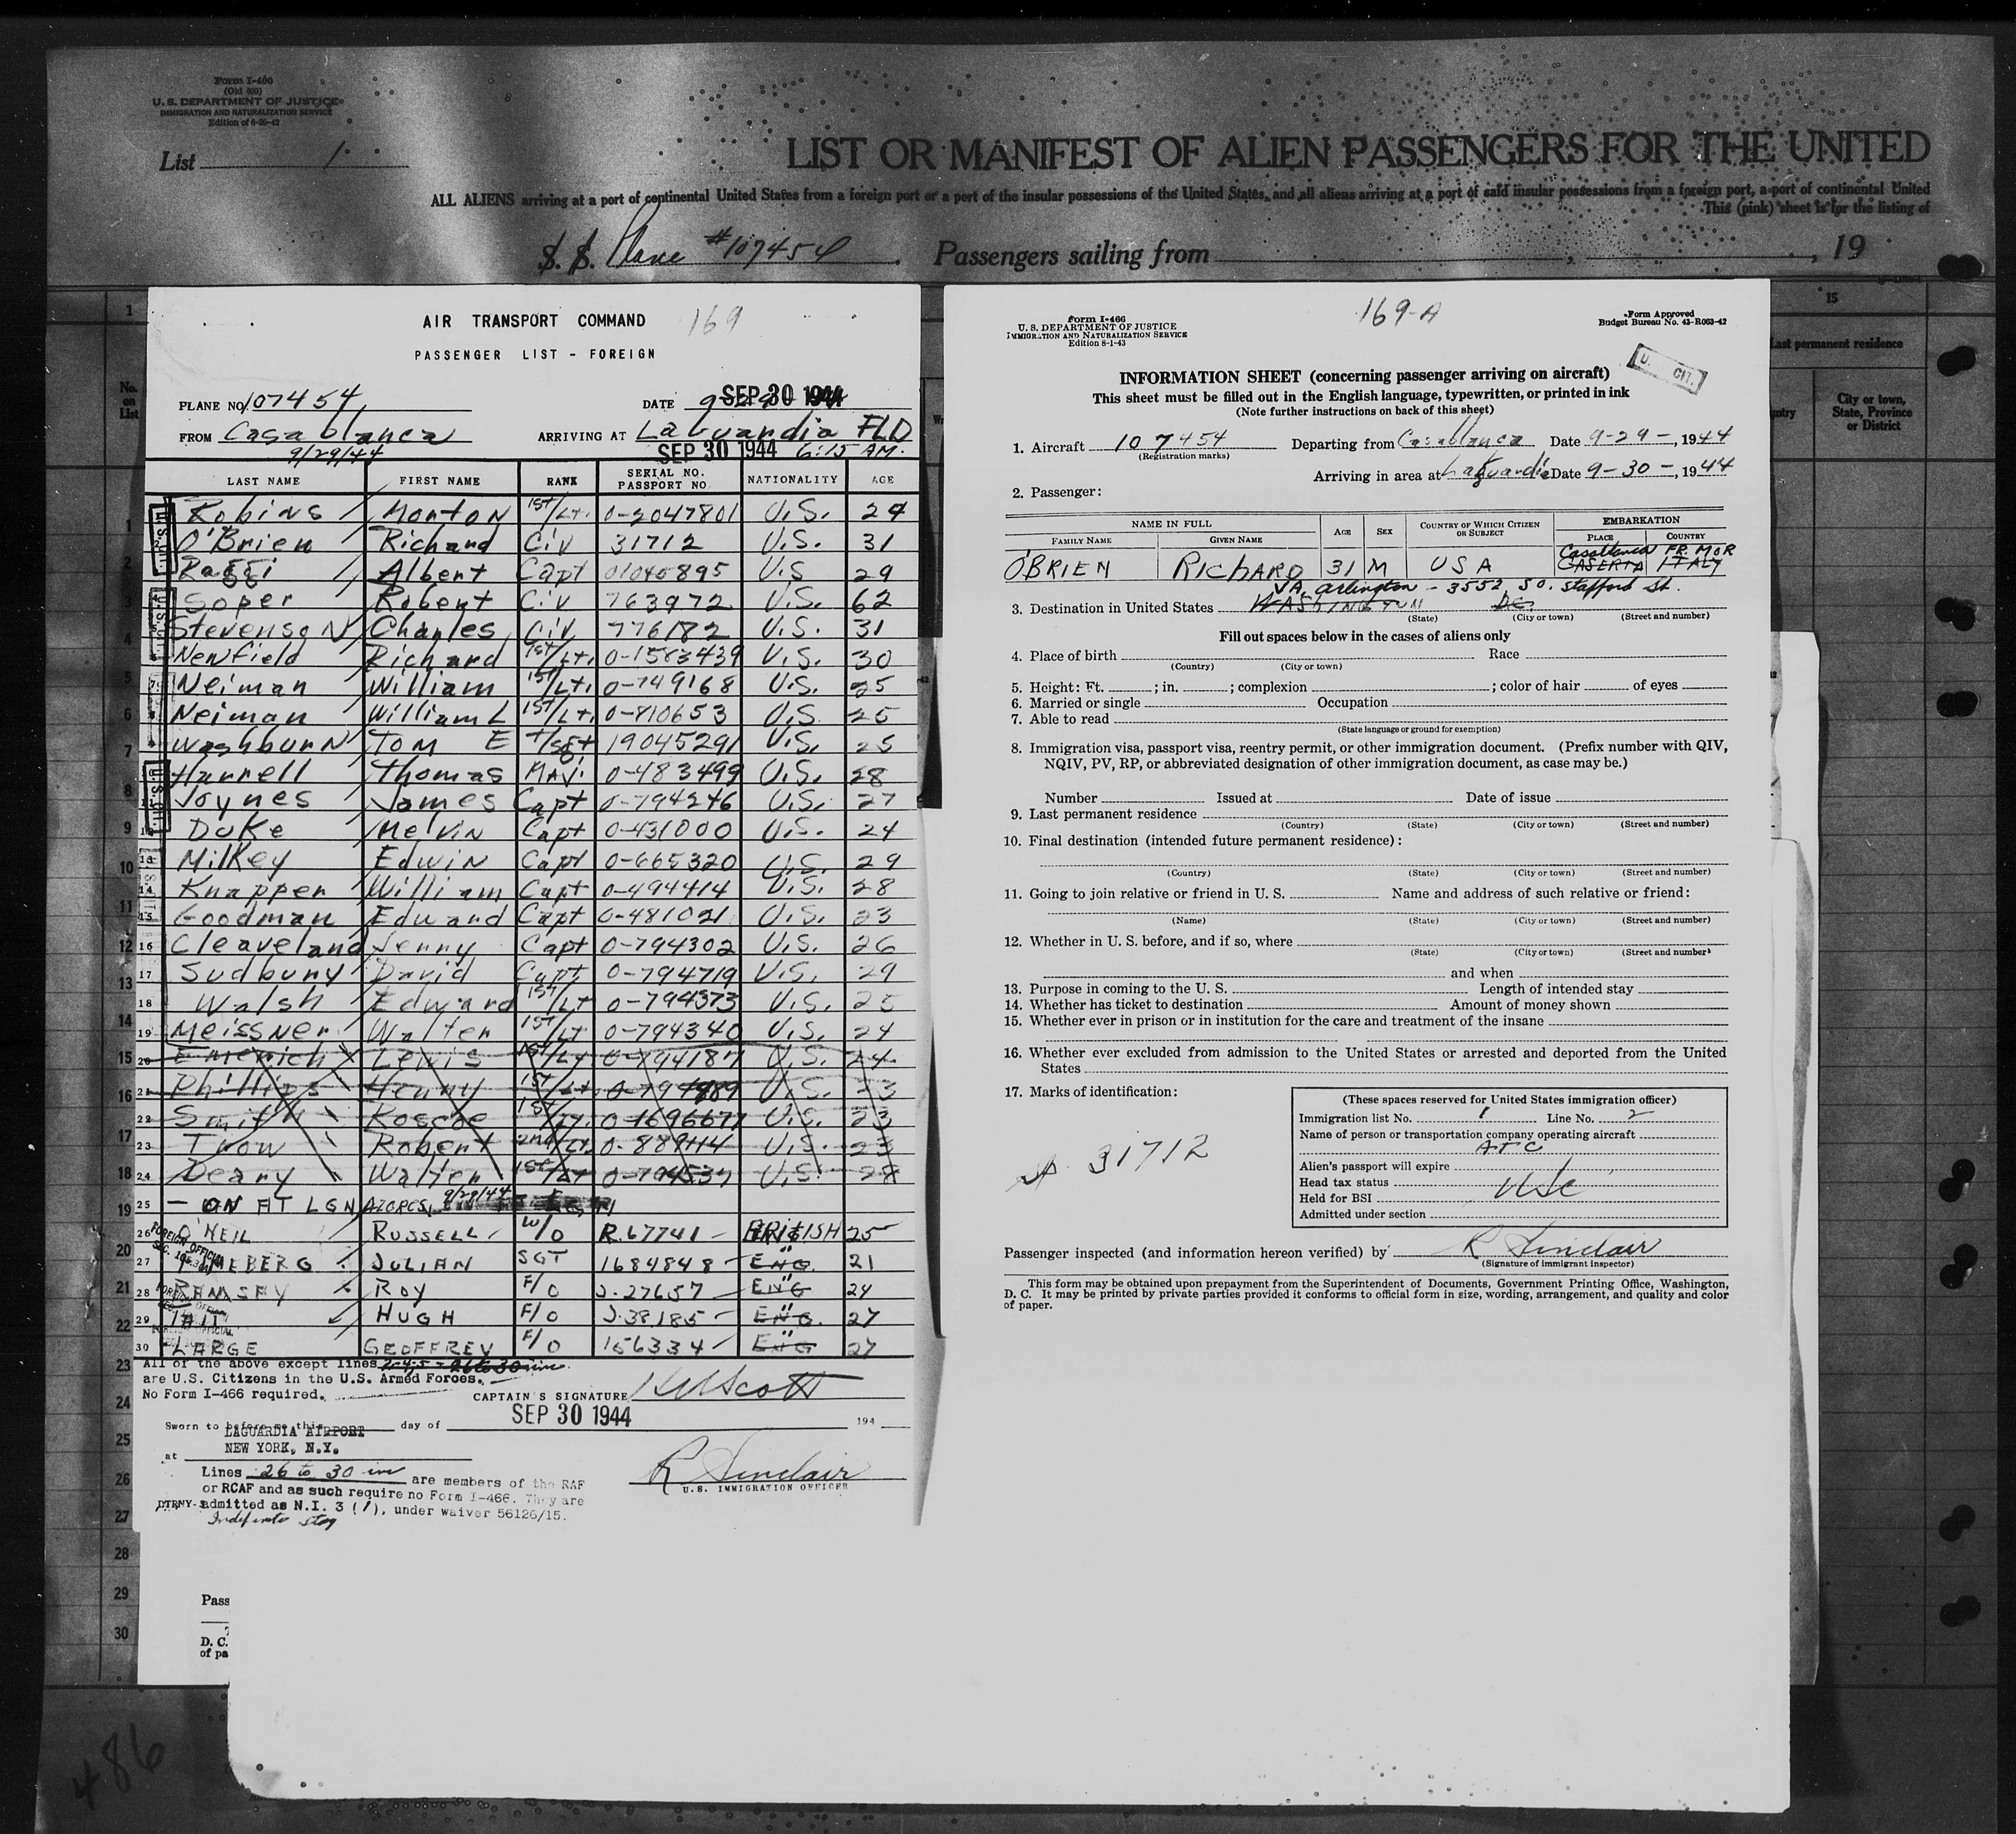 Form I-400
(Old 500)
U. S. DEPARTMENT OF JUSTICE
IMMIGRATION AND NATURALIZATION SERVICE
List 1
LIST OR MANIFEST OF ALIEN PASSENGERS FOR THE UNITED
ALL ALIENS arriving at a port of continental United States from a foreign port or a port of the insular possessions of the United States, and all aliens arriving at a port of said insular possessions from a foreign port, a port of continental United
This (pink) sheet is for the listing of
S. S. Plane #107454 Passengers sailing from , , 19
AIR TRANSPORT COMMAND 169
PASSENGER LIST - FOREIGN
PLANE NO. 107454 DATE SEP 30 1944
FROM Casablanca ARRIVING AT LaGuardia FLD
9/29/44 SEP 30 1944 6:15 AM.
LAST NAME FIRST NAME RANK SERIAL NO. PASSPORT NO. NATIONALITY AGE
Robins Morton 1st/Lt. 0-2047801 U.S. 24
O'Brien Richard Civ 31712 U.S. 31
Albert Capt 01045895 U.S 29
Soper Robert Civ 763972 U.S. 62
Stevenson Charles Civ 776182 U.S. 31
Newfield Richard 1st/Lt. 0-1583439 U.S. 30
Neiman William 1st/Lt. 0-749168 U.S. 25
Neiman William L 1st/Lt. 0-810653 U.S. 25
Washburn Tom E T/Sgt 19045291 U.S. 25
Harrell Thomas MAJ. 0-483499 U.S. 28
Joynes James Capt 0-794246 U.S. 27
Duke Melvin Capt 0-431000 U.S. 24
Milkey Edwin Capt 0-665320 U.S. 29
Knapper William Capt 0-494414 U.S. 28
Goodman Edward Capt 0-481021 U.S. 23
Cleaveland Jenny Capt 0-794302 U.S. 26
Sudbury David Capt 0-794719 U.S. 29
Walsh Edward 1st/Lt 0-794373 U.S. 25
Meissner Walter 1st/Lt 0-794340 U.S. 24
Emerich Lewis 1st/Lt 0-794187 U.S. 24
Phillips Henry 1st/Lt U.S. 23
Smith Roscoe 1st/Lt. 0-1696677 U.S. 23
Trow Robert 2nd/Lt. 0-889114 U.S. 23
Deary Walter 1st/Lt 0-794537 U.S. 28
— ON AT LGN AZORES, 9/29/44
O'NEIL RUSSELL W/O R.67741 BRITISH 25
JULIAN SGT 1684848 ENG. " 21
RAMSAY ROY F/O J.27657 ENG " 24
TAIT HUGH F/O J.38185 ENG. " 27
LARGE GEOFFREY F/O 156334 ENG " 27
All of the above except lines 2-4-5 - 26 to 30 inc.
are U.S. Citizens in the U.S. Armed Forces.
No Form I-466 required.
CAPTAIN'S SIGNATURE
SEP 30 1944
Sworn to before me this day of 194
LAGUARDIA AIRPORT
at NEW YORK, N.Y.
R Sinclair
U.S. IMMIGRATION OFFICER
Lines 26 to 30 inc are members of the RAF
or RCAF and as such require no Form I-466. They are
admitted as N.I. 3 (1), under waiver 56126/15.
Indefinite stay
Pass
D. C.
of pa
486
Form I-466
U. S. DEPARTMENT OF JUSTICE
IMMIGRATION AND NATURALIZATION SERVICE
Edition 8-1-43
169-A
Form Approved
Budget Bureau No. 43-R063-42
U. CIT.
INFORMATION SHEET (concerning passenger arriving on aircraft)
This sheet must be filled out in the English language, typewritten, or printed in ink
(Note further instructions on back of this sheet)
1. Aircraft 107454 Departing from Casablanca Date 9-29-, 1944
(Registration marks)
Arriving in area at LaGuardia Date 9-30-, 1944
2. Passenger:
NAME IN FULL AGE SEX COUNTRY OF WHICH CITIZEN OR SUBJECT EMBARKATION
FAMILY NAME GIVEN NAME PLACE COUNTRY
Casablanca FR. MOR
O'BRIEN RICHARD 31 M USA CASERTA ITALY
VA. Arlington - 3552 SO. Stafford St.
3. Destination in United States WASHINGTON DC
(State) (City or town) (Street and number)
Fill out spaces below in the cases of aliens only
4. Place of birth Race
(Country) (City or town)
5. Height: Ft. ; in. ; complexion ; color of hair of eyes
6. Married or single Occupation
7. Able to read
(State language or ground for exemption)
8. Immigration visa, passport visa, reentry permit, or other immigration document. (Prefix number with QIV,
NQIV, PV, RP, or abbreviated designation of other immigration document, as case may be.)
Number Issued at Date of issue
9. Last permanent residence
(Country) (State) (City or town) (Street and number)
10. Final destination (intended future permanent residence):
(Country) (State) (City or town) (Street and number)
11. Going to join relative or friend in U. S. Name and address of such relative or friend:
(Name) (State) (City or town) (Street and number)
12. Whether in U. S. before, and if so, where
(State) (City or town) (Street and number)
and when
13. Purpose in coming to the U. S. Length of intended stay
14. Whether has ticket to destination Amount of money shown
15. Whether ever in prison or in institution for the care and treatment of the insane
16. Whether ever excluded from admission to the United States or arrested and deported from the United
States
17. Marks of identification:
31712
(These spaces reserved for United States immigration officer)
Immigration list No. 1 Line No. 2
Name of person or transportation company operating aircraft
ATC
Alien's passport will expire
Head tax status USC
Held for BSI
Admitted under section
Passenger inspected (and information hereon verified) by R Sinclair
(Signature of immigrant inspector)
This form may be obtained upon prepayment from the Superintendent of Documents, Government Printing Office, Washington,
D. C. It may be printed by private parties provided it conforms to official form in size, wording, arrangement, and quality and color
of paper.
15
Last permanent residence
City or town,
State, Province
or District